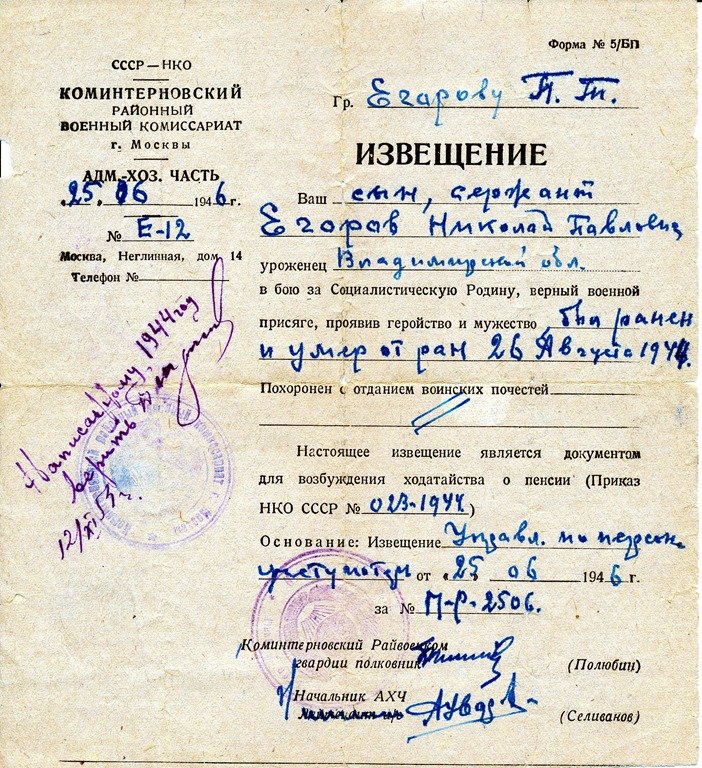 Форма № 5/БП
СССР — НКО
КОМИНТЕРНОВСКИЙ
РАЙОННЫЙ
ВОЕННЫЙ КОМИССАРИАТ
г. Москвы
АДМ.-ХОЗ. ЧАСТЬ
25. 06 1946 г.
№ Е-12
Москва, Неглинная, дом 14
Телефон №
Гр. Егарову П. Т.
ИЗВЕЩЕНИЕ
Ваш сын, сержант
Егоров Николай Павлович
уроженец Владимирской обл.
в бою за Социалистическую Родину, верный военной
присяге, проявив геройство и мужество, был ранен
и умер от ран 26 Августа 1944.
Похоронен с отданием воинских почестей
Настоящее извещение является документом
для возбуждения ходатайства о пенсии (Приказ
НКО СССР № 023-1944)
Основание: Извещение Управл. по персон
от «25» 06 1946 г.
за № П-Р-2506.
Коминтерновский Райвоенком
гвардии полковник (Полюбин)
Начальник АХЧ
(Селиванов)
1944 год
верить
12/XI 53 г.